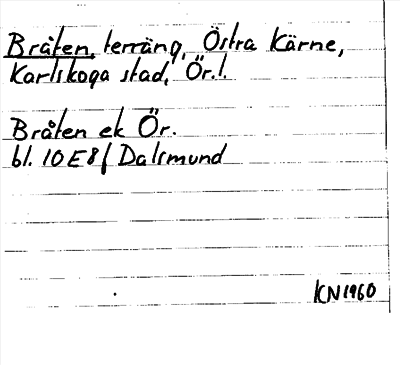 Bråten, terräng, Östra Kärne,
Karlskoga stad, Ör.l.
Bråten ek Ör.
bl. 10E8f Dalsmund
KN1960